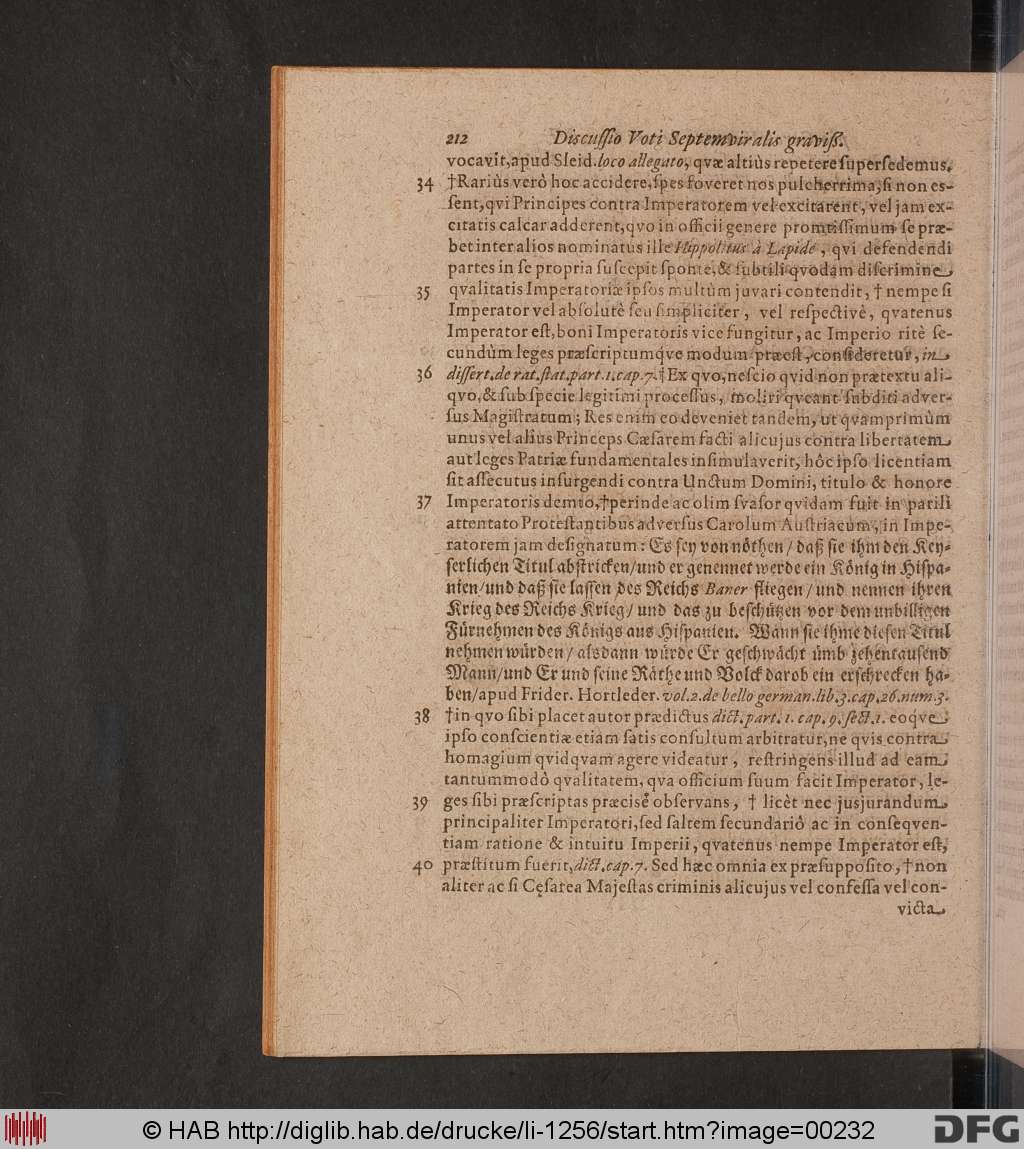 212 Discussio Voti Septemviralis graviß.
vocavit, apud Sleid. loco allegato, qvæ altiùs repetere supersedemus.
34 †Rariùs verò hoc accidere, spes foveret nos pulcherrima, si non es-
sent, qvi Principes contra Imperatorem vel excitarent, vel jam ex-
citatis calcar adderent, qvo in officii genere promtissimum se præ-
bet inter alios nominatus ille Hippolitus à Lapide, qvi defendendi
partes in se propria suscepit sponte, & subtili qvodam discrimine
35 qvalitatis Imperatoriæ ipsos multùm juvari contendit, † nempe si
Imperator vel absolutè seu simpliciter, vel respectivè, qvatenus
Imperator est, boni Imperatoris vice fungitur, ac Imperio ritè se-
cundùm leges præscriptumqve modum præest, consideretur, in
36 dissert. de rat. stat. part. 1. cap. 7. †Ex qvo, nescio qvid non prætextu ali-
qvo, & sub specie legitimi processus, moliri qveant subditi adver-
sus Magistratum; Res enim eo deveniet tandem, ut qvamprimùm
unus vel alius Princeps Cæsarem facti alicujus contra libertatem
aut leges Patriæ fundamentales insimulaverit, hôc ipso licentiam
sit assecutus insurgendi contra Unctum Domini, titulo & honore
37 Imperatoris demto, †perinde ac olim svasor qvidam fuit in parili
attentato Protestantibus adversus Carolum Austriacum, in Impe-
ratorem jam designatum: Es sey von nöthen / daß sie ihm den Key-
serlichen Titul abstricken / und er genennet werde ein König in Hispa-
nien / und daß sie lassen des Reichs Baner fliegen / und nennen ihren
Krieg des Reichs Krieg / und das zu beschützen vor dem unbilligen
Fürnehmen des Königs aus Hispanien. Wann sie ihme diesen Titul
nehmen würden / alsdann würde Er geschwächt ümb zehentausend
Mann / und Er und seine Räthe und Volck darob ein erschrecken ha-
ben / apud Frider. Hortleder. vol. 2. de bello german. lib. 3. cap. 26. num. 3.
38 †in qvo sibi placet autor prædictus dict. part. 1. cap. 9. sect. 1. eoqve
ipso conscientiæ etiam satis consultum arbitratur, ne qvis contra
homagium qvidqvam agere videatur, restringens illud ad eam
tantummodò qvalitatem, qva officium suum facit Imperator, le-
39 ges sibi præscriptas præcisè observans, † licèt nec jusjurandum
principaliter Imperatori, sed saltem secundariò ac in conseqven-
tiam ratione & intuitu Imperii, qvatenus nempe Imperator est,
40 præstitum fuerit, dict. cap. 7. Sed hæc omnia ex præsupposito, † non
aliter ac si Cęsarea Majestas criminis alicujus vel confessa vel con-
victa
© HAB http://diglib.hab.de/drucke/li-1256/start.htm?image=00232
DFG